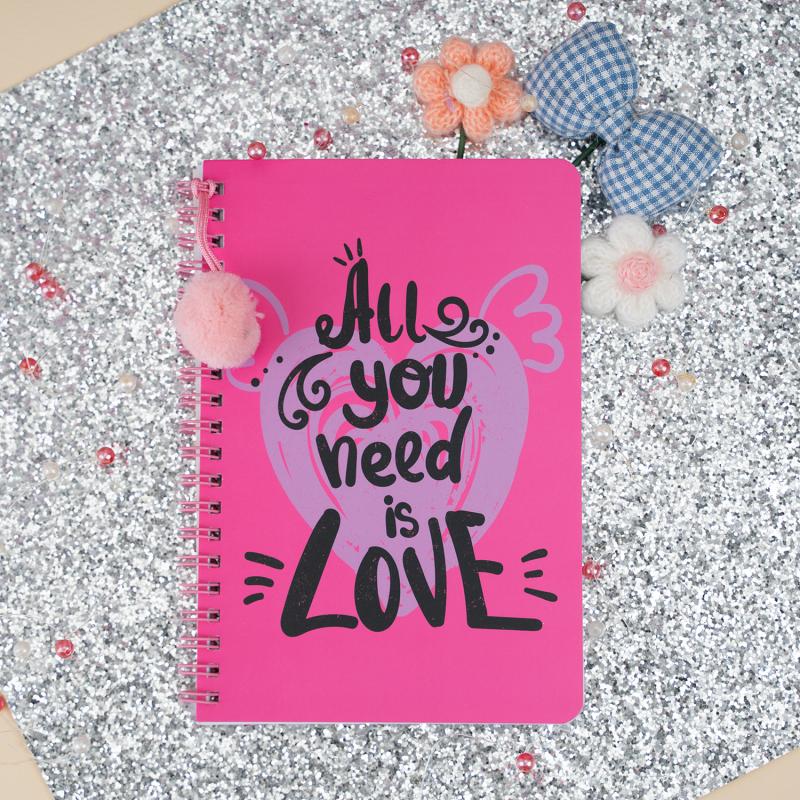 All
you
need
is
LOVE